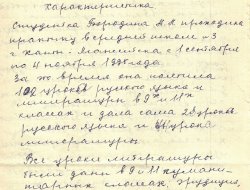 Характеристика
Студентка Бородина А.А. проходила
практику в средней школе №3
г. Ханты-Мансийска с 1 сентября
по 4 ноября
За это время она посетила
уроков русского языка и
литературы в 9 и 11
классах и дала сама 28 уроков
русского языка и уроков
литературы.
Все уроки литературы
были даны в 9 и 11 гумани-
тарных классах.